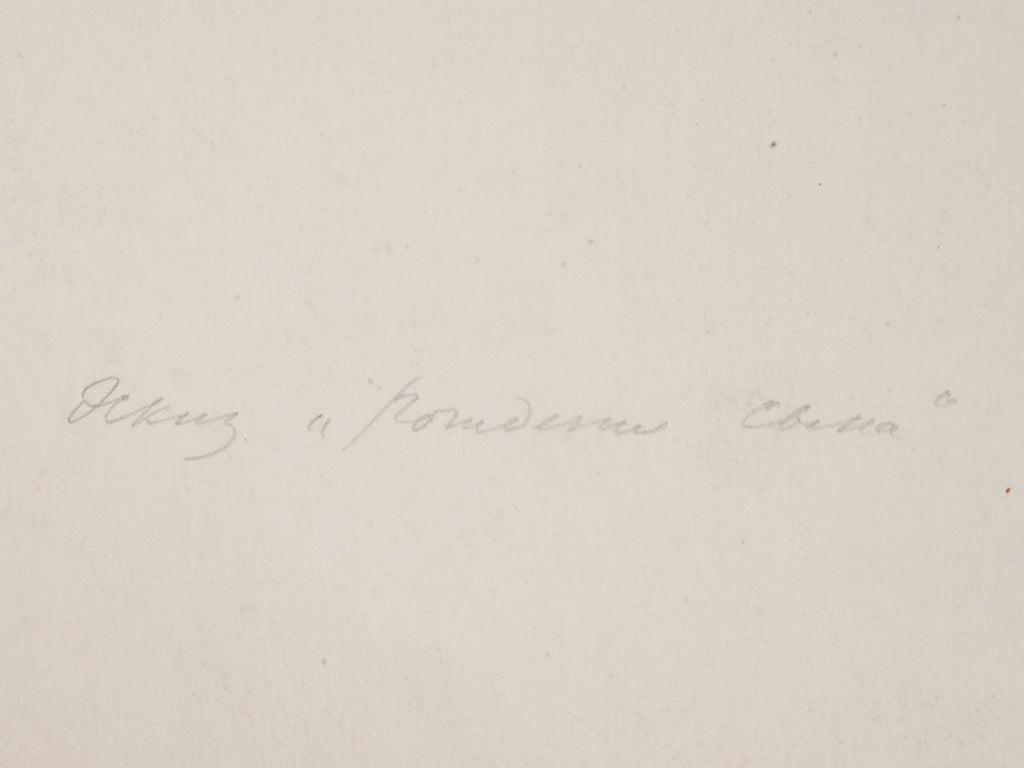 Эскиз „Рождение света“